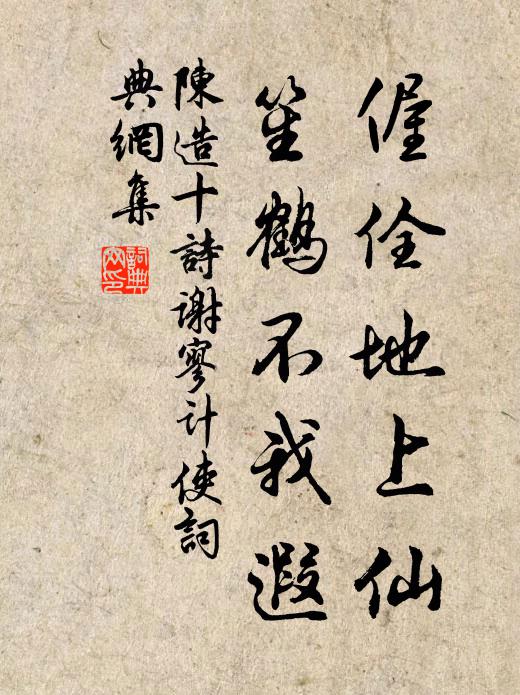 偓佺地上仙
笙鶴不我遐
陳造十詩謝寥計使詞
典網集
詞典
网印